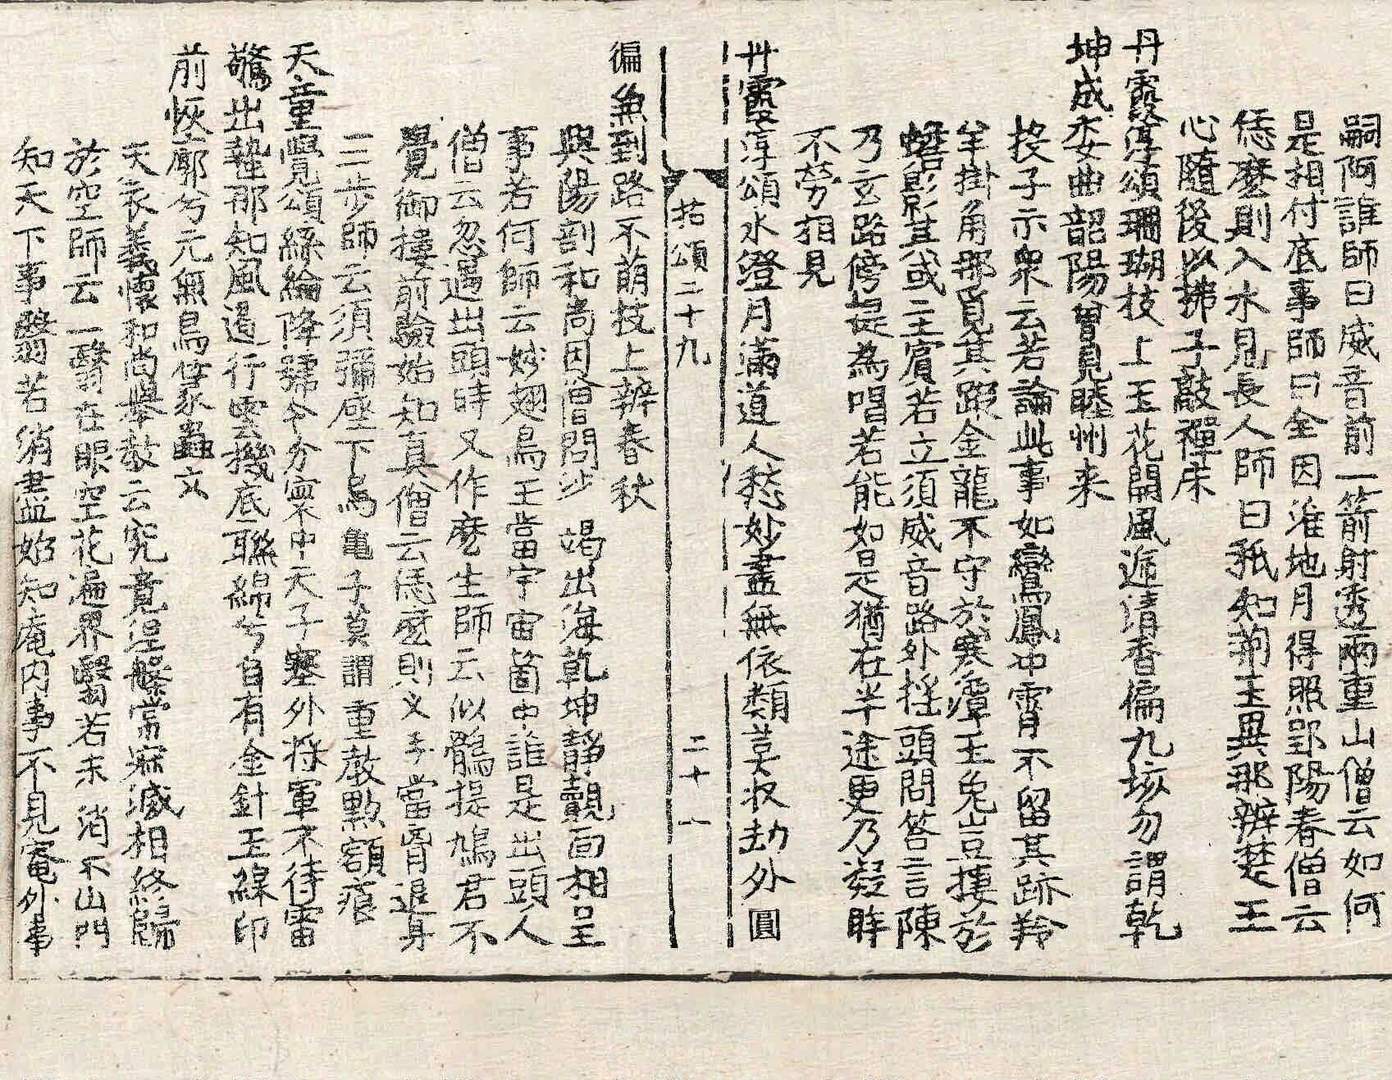 嗣阿誰師曰威音前一箭射透兩重山僧云如何
是相付底事師曰全因淮地月得照郢陽春僧云
恁麼則入水見長人師曰秖知荊玉異那辨楚王
心隨後以拂子敲禪床
丹霞淳頌珊瑚枝上玉花開風遞清香徧九垓勿謂乾
坤成委曲韶陽曾見睦州来
投子示衆云若論此事如鸞鳳冲霄不留其跡羚
羊掛角那覓其蹤金龍不守於寒潭玉兔豈棲於
蟾影其或主賓若立須威音路外揺頭問答言陳
乃玄路傍提為唱若能如是猶在半途更乃凝眸
不勞相見
丹霞淳頌水澄月滿道人愁妙盡無依類莫收劫外圓
拈頌二十九 二十一
徧無到路不萌技上辨春秋
興陽剖和尚因僧問沙竭出海乾坤静覿面相呈
事若何師云妙翅鳥王當宇宙箇中誰是出頭人
僧云忽遇出頭時又作麽生師云似鶻提鳩君不
覺御樓前驗始知真僧云恁麽則义手當胷退身
三步師云須彌座下烏龜子莫謂重教點額痕
天童覺頌絲綸降號令分寰中天子塞外将軍不待雷
驚出蟄那知風遏行雲機底聯綿兮自有金針玉線印
前恢廓兮元無鳥篆蟲文
天衣義懷和尚舉教云究竟涅槃常寂滅相終歸
於空師云一翳在眼空花遍界翳若未消不山門
知天下事翳若消盡始知庵内事不見庵外事